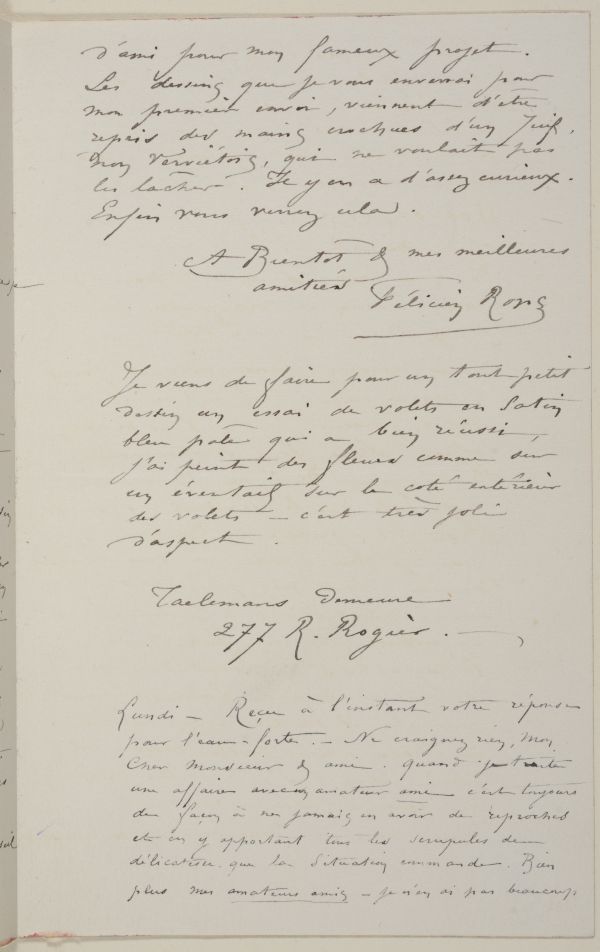 d'ami pour mon fameux projet.
Les dessins que je vous enverrai pour
mon premier envoi, viennent d'être
repris des mains crochues d'un Juif,
non Verviétois, qui ne voulait pas
les lâcher. Il y en a d'assez curieux.
Enfin vous verrez cela.
A Bientôt & mes meilleures
amitiés
Félicien Rops
Je viens de faire pour un tout petit
dessin un essai de volets en Satin
bleu pâle qui a bien réussi,
j'ai peint des fleurs comme sur
un éventail sur le coté extérieur
des volets – c'est très joli
d'aspect.
Taelemans Demeure
277 R. Rogier. —
Lundi – Reçu à l'instant votre réponse
pour l'eau-forte. – Ne craignez rien, mon
Cher Monsieur & ami. quand je traite
une affaire avec un amateur ami c'est toujours
de façon à ne jamais en avoir de reproches
et en y apportant tous les scrupules de
délicatesse que la Situation commande. Bien
plus mes amateurs amis – je n'en ai pas beaucoup